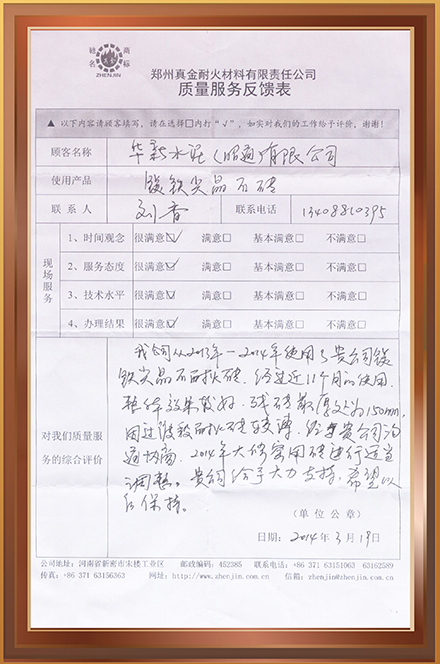 驰 商
名 标
ZHENJIN
郑州真金耐火材料有限责任公司
质量服务反馈表
▲ 以下内容请顾客填写，请在选择□内打“√”，如实对我们的工作给予评价，谢谢！
顾客名称 华新水泥（昭通）有限公司
使用产品 镁铁尖晶石砖
联系人 刘香 联系电话 13408810395
现场服务
1、时间观念 很满意☑ 满意□ 基本满意□ 不满意□
2、服务态度 很满意☑ 满意□ 基本满意□ 不满意□
3、技术水平 很满意☑ 满意□ 基本满意□ 不满意□
4、办理结果 很满意☑ 满意□ 基本满意□ 不满意□
对我们质量服务的综合评价
我公司从2013年—2014年使用了贵公司镁
铁尖晶石耐火砖，经过近11个月的使用，
整体效果较好，残砖最厚处为150mm，
因过渡段耐火砖较薄，经与贵公司沟
通协商，2014年大修窑用砖进行适当
调整。贵公司给予大力支持，希望以
后保持。
（单位公章）
日期：2014年3月19日
公司地址：河南省新密市宋楼工业区 邮政编码：452385 联系电话：+86 371 63151063 63162589
传真：+86 371 63156363 网址：http://www.zhenjin.com.cn 信箱：zhenjin@zhenjin.com.cn